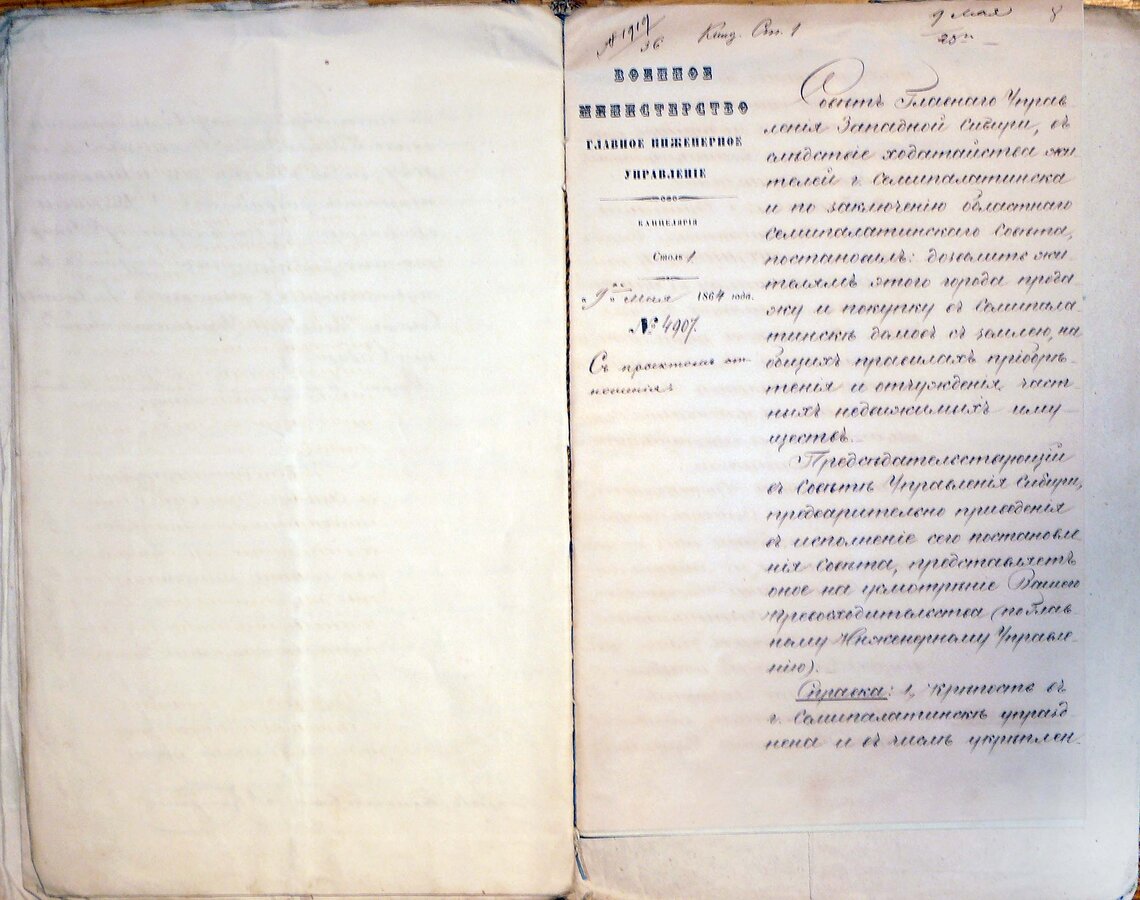 № 1919/36
Канц. Ст. 1
9 Мая
25
8
ВОЕННОЕ
МИНИСТЕРСТВО
ГЛАВНОЕ ИНЖЕНЕРНОЕ
УПРАВЛЕНІЕ
КАНЦЕЛЯРІЯ
Столъ 1
9 Мая 1864 года.
№ 4907.
Съ проектомъ от-
ношенія
Совѣтъ Главнаго Управ
ленія Западной Сибири, въ
слѣдствіе ходатайства жи
телей г. Семипалатинска
и по заключенію областнаго
Семипалатинскаго Совѣта,
постановилъ: дозволить жи
телямъ этого города прода
жу и покупку въ Семипала
тинскѣ домовъ съ землею, на
общихъ правилахъ пріобрѣ
тенія и отчужденія част
ныхъ недвижимыхъ иму
ществъ.
Предсѣдательствующій
въ Совѣтѣ Управленія Сибири,
предварительно приведенія
въ исполненіе сего постановле
нія Совѣта, представляетъ
оное на усмотрѣніе Вашего
Превосходительства (по Глав
ному Инженерному Управле
нію).
Справка: 1, Крѣпость въ
г. Семипалатинскѣ упразд
нена и въ числѣ укрѣплен.